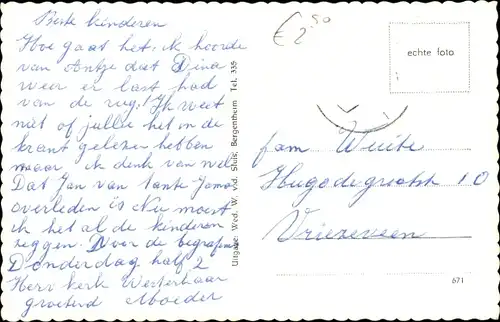 Beste kinderen
Hoe gaat het. ik hoorde
van Antje dat Dina
weer er last had
van de rug! Ik weet
niet of jullie het in de
krant gelezen hebben
maar ik denk van wel
Dat Jan van tante Janna
overleden is Nu moest
ik het al de kinderen
zeggen. Voor de begrafenis
Donderdag half 2
Herv kerk Westerhaar
groetend Moeder
€ 2,50
echte foto
Uitgave: Wed. W. v.d. Sluis, Bergentheim Tel. 335
fam
Hugo de grootstr 10
Vriezeveen
671